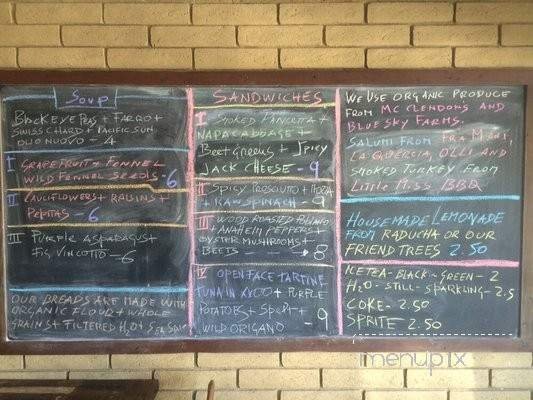 Soup
Black eye Peas + Farro +
Swiss chard + Pacific Sun
Olio Nuovo - 4
I Grapefruit + Fennel
Wild Fennel Seeds - 6
II Cauliflowers + Raisins +
Pepitas - 6
III Purple Asparagus +
Fig Vincotto - 6
Our breads are made with
organic flour + whole
grains + filtered H2O + Sea Salt
SANDWICHES
I Smoked Pancetta +
Napa Cabbage +
Beet Greens + Spicy
Jack Cheese - 9
II Spicy Prosciutto +
+ Raw Spinach - 9
III Wood Roasted
+ Anaheim Peppers +
Oyster Mushrooms +
Beets - 8
IV Open Face Tartine
Tuna in XVOO + Purple
Potatoes +
Wild Origano - 9
We use organic produce
from Mc Clendons and
Blue Sky Farms.
Salumi from Fra Mani,
La Quercia, Olli and
smoked turkey from
Little Miss BBQ
Housemade Lemonade
from Raducha or our
friend trees 2.50
Ice Tea - Black - Green - 2
H2O - Still - Sparkling - 2.5
Coke - 2.50
Sprite 2.50
menupix